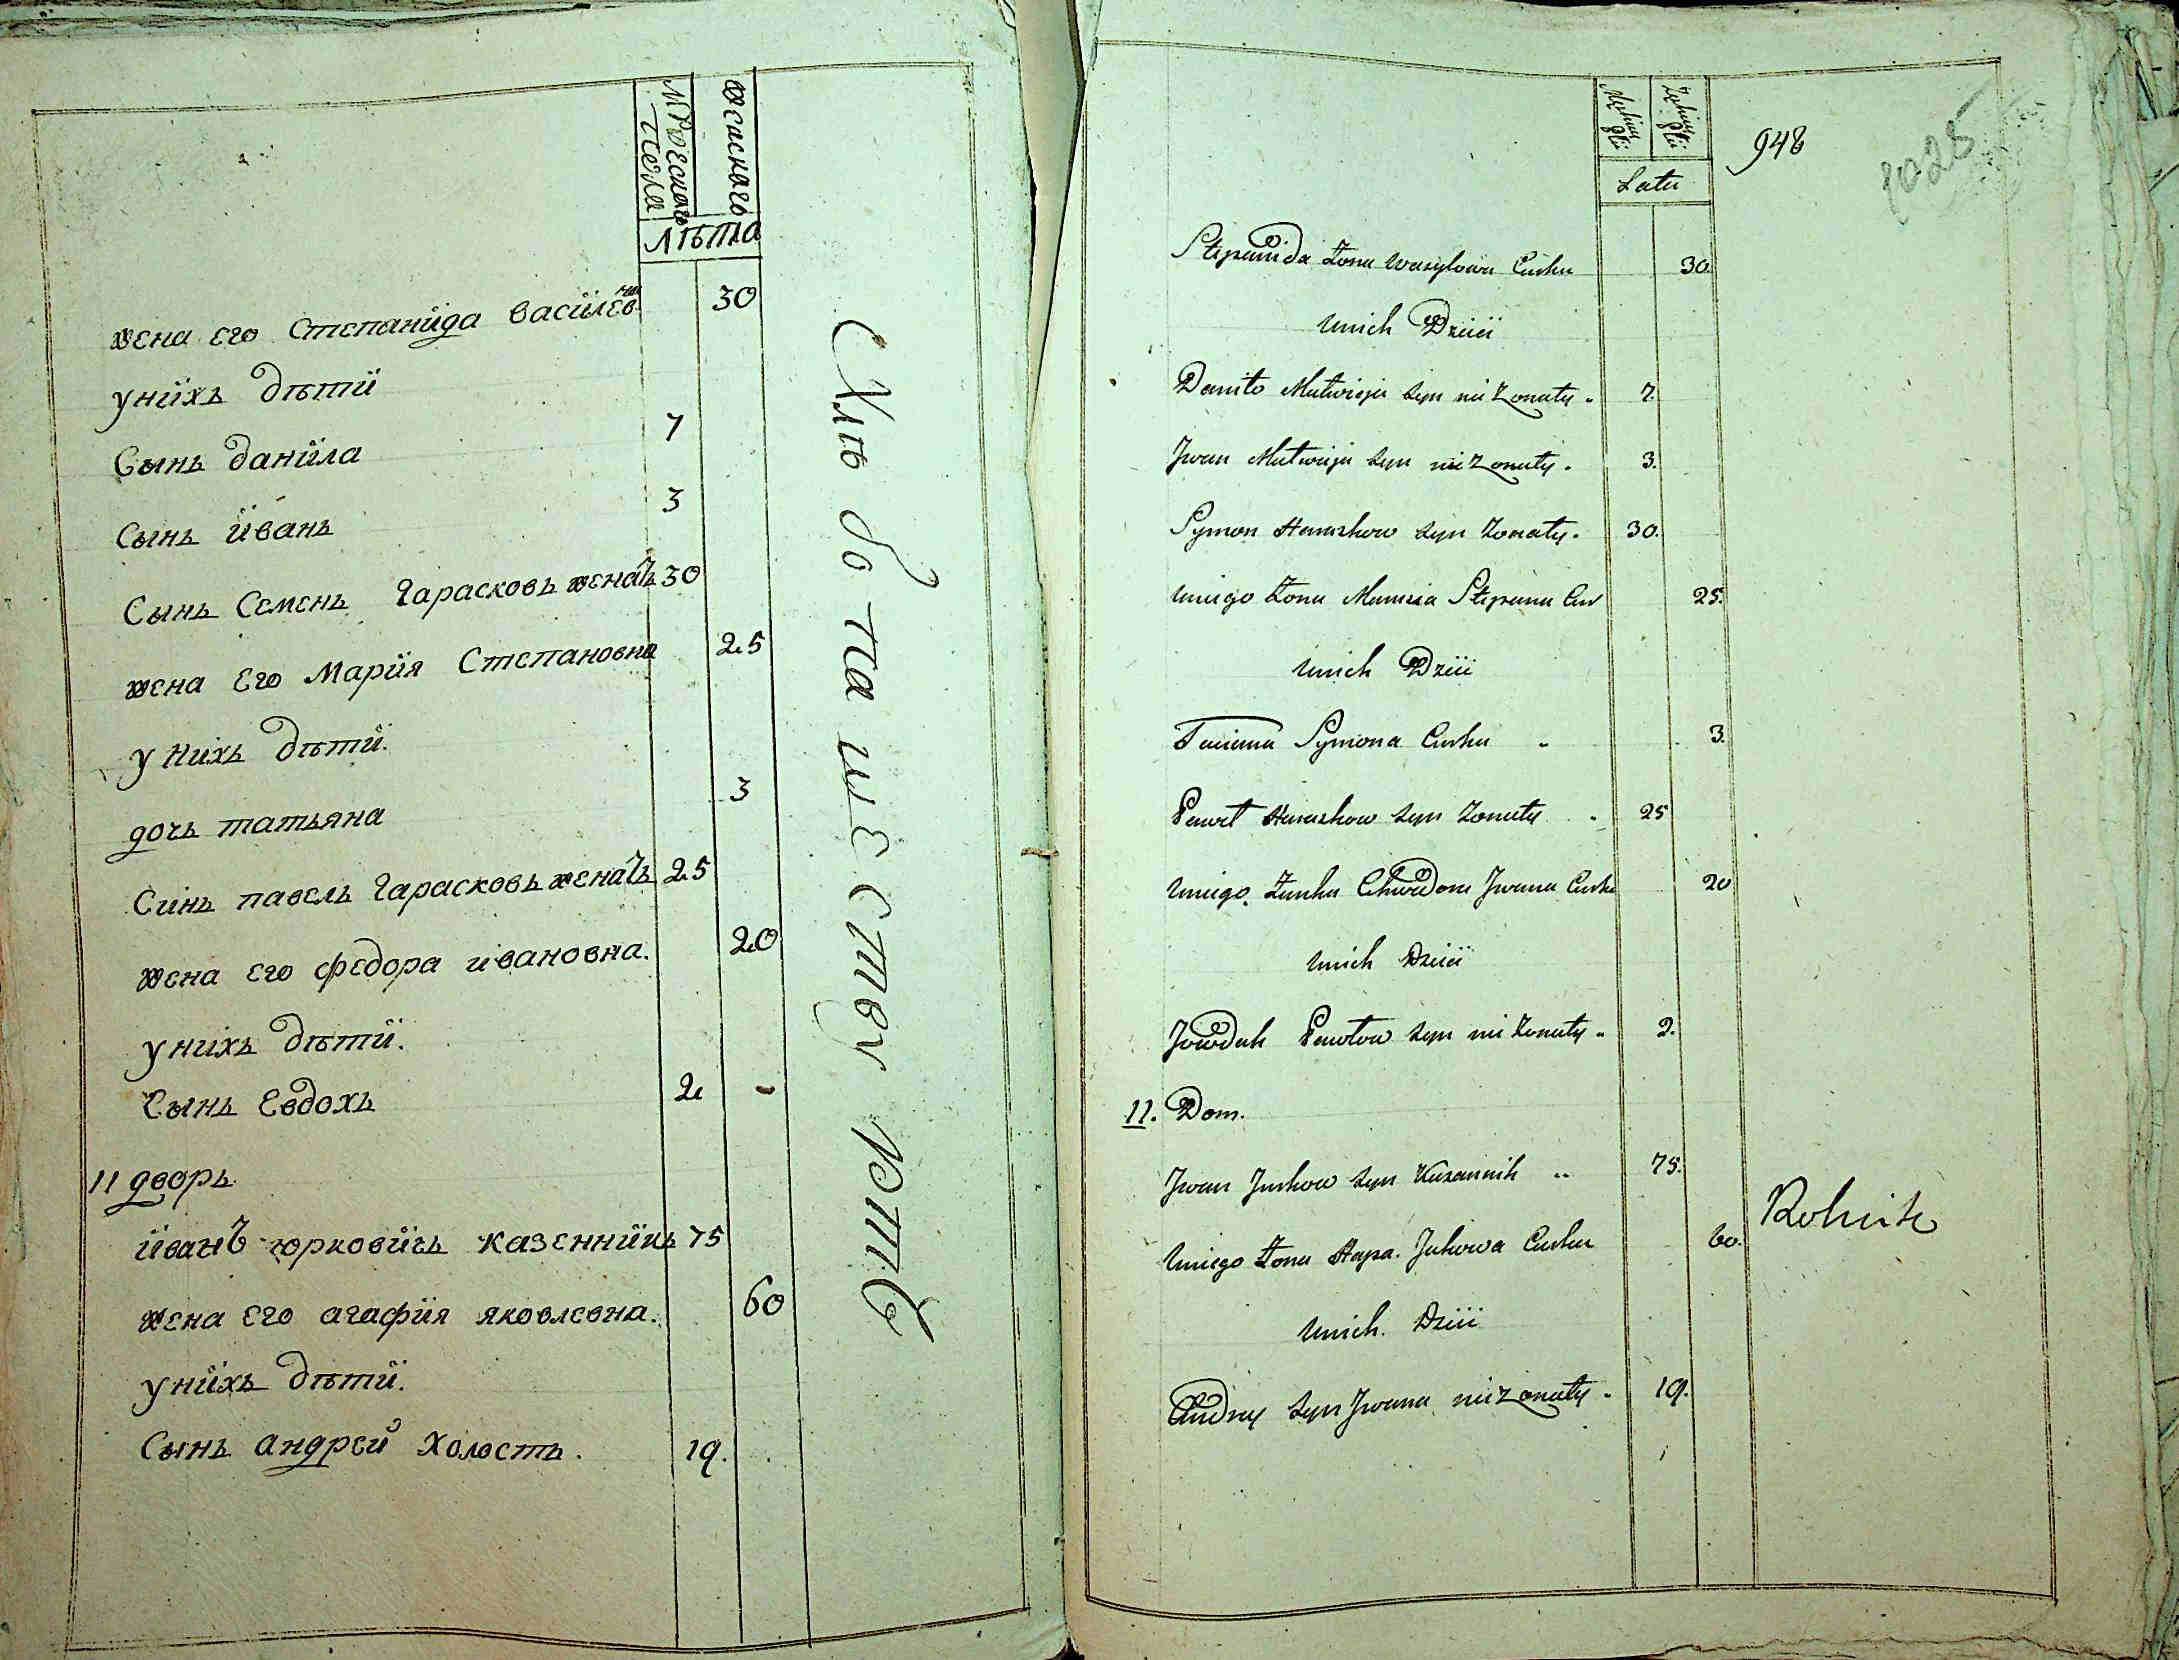 мужескагѡ
пола
женскагѡ
лѣта
жена его степанида василев на 30
у нихъ дѣти
Сынъ данила 7
Сынъ иванъ 3
Сынъ Семенъ Гарасковъ женатъ 30
жена его Мария Степановна 25
у нихъ дѣти.
дочь татьяна 3
Синъ павелъ Гарасковъ женатъ 25
жена его федора ивановна. 20
у нихъ дѣти.
Сынъ Евдохъ 2 -
11 дворъ
иванъ юрковичъ казенникъ 75
жена его агафия яковлевна. 60
у нихъ дѣти.
Сынъ андрей холостъ. 19.
Хлѣбопашествуютъ
948
1025
Latu
Stepanida Zona Wasylowa Curka 30.
unich Dzieci
Daniło Mutwieja syn nie Zonaty. 7.
Jwan Mutwieja syn nie Zonaty. 3.
Symon Haraskow syn Zonaty. 30.
uniego Zona Marusia Stepana Cur 25.
unich Dzieci
Taciana Symona Curka 3.
Paweł Haraskow syn Zonaty 25
uniego Zonka Chwiedora Jwana Curka 20
unich Dzieci
Jowdoh Pawłow syn nie Zonaty. 2.
11. Dom.
Jwan Jurkow syn Kazannik 75.
uniego Zona Hapa. Jakowa Curka 60.
unich. Dzieci
Andrey syn Jwana nie Zonaty. 19.
Rolnik